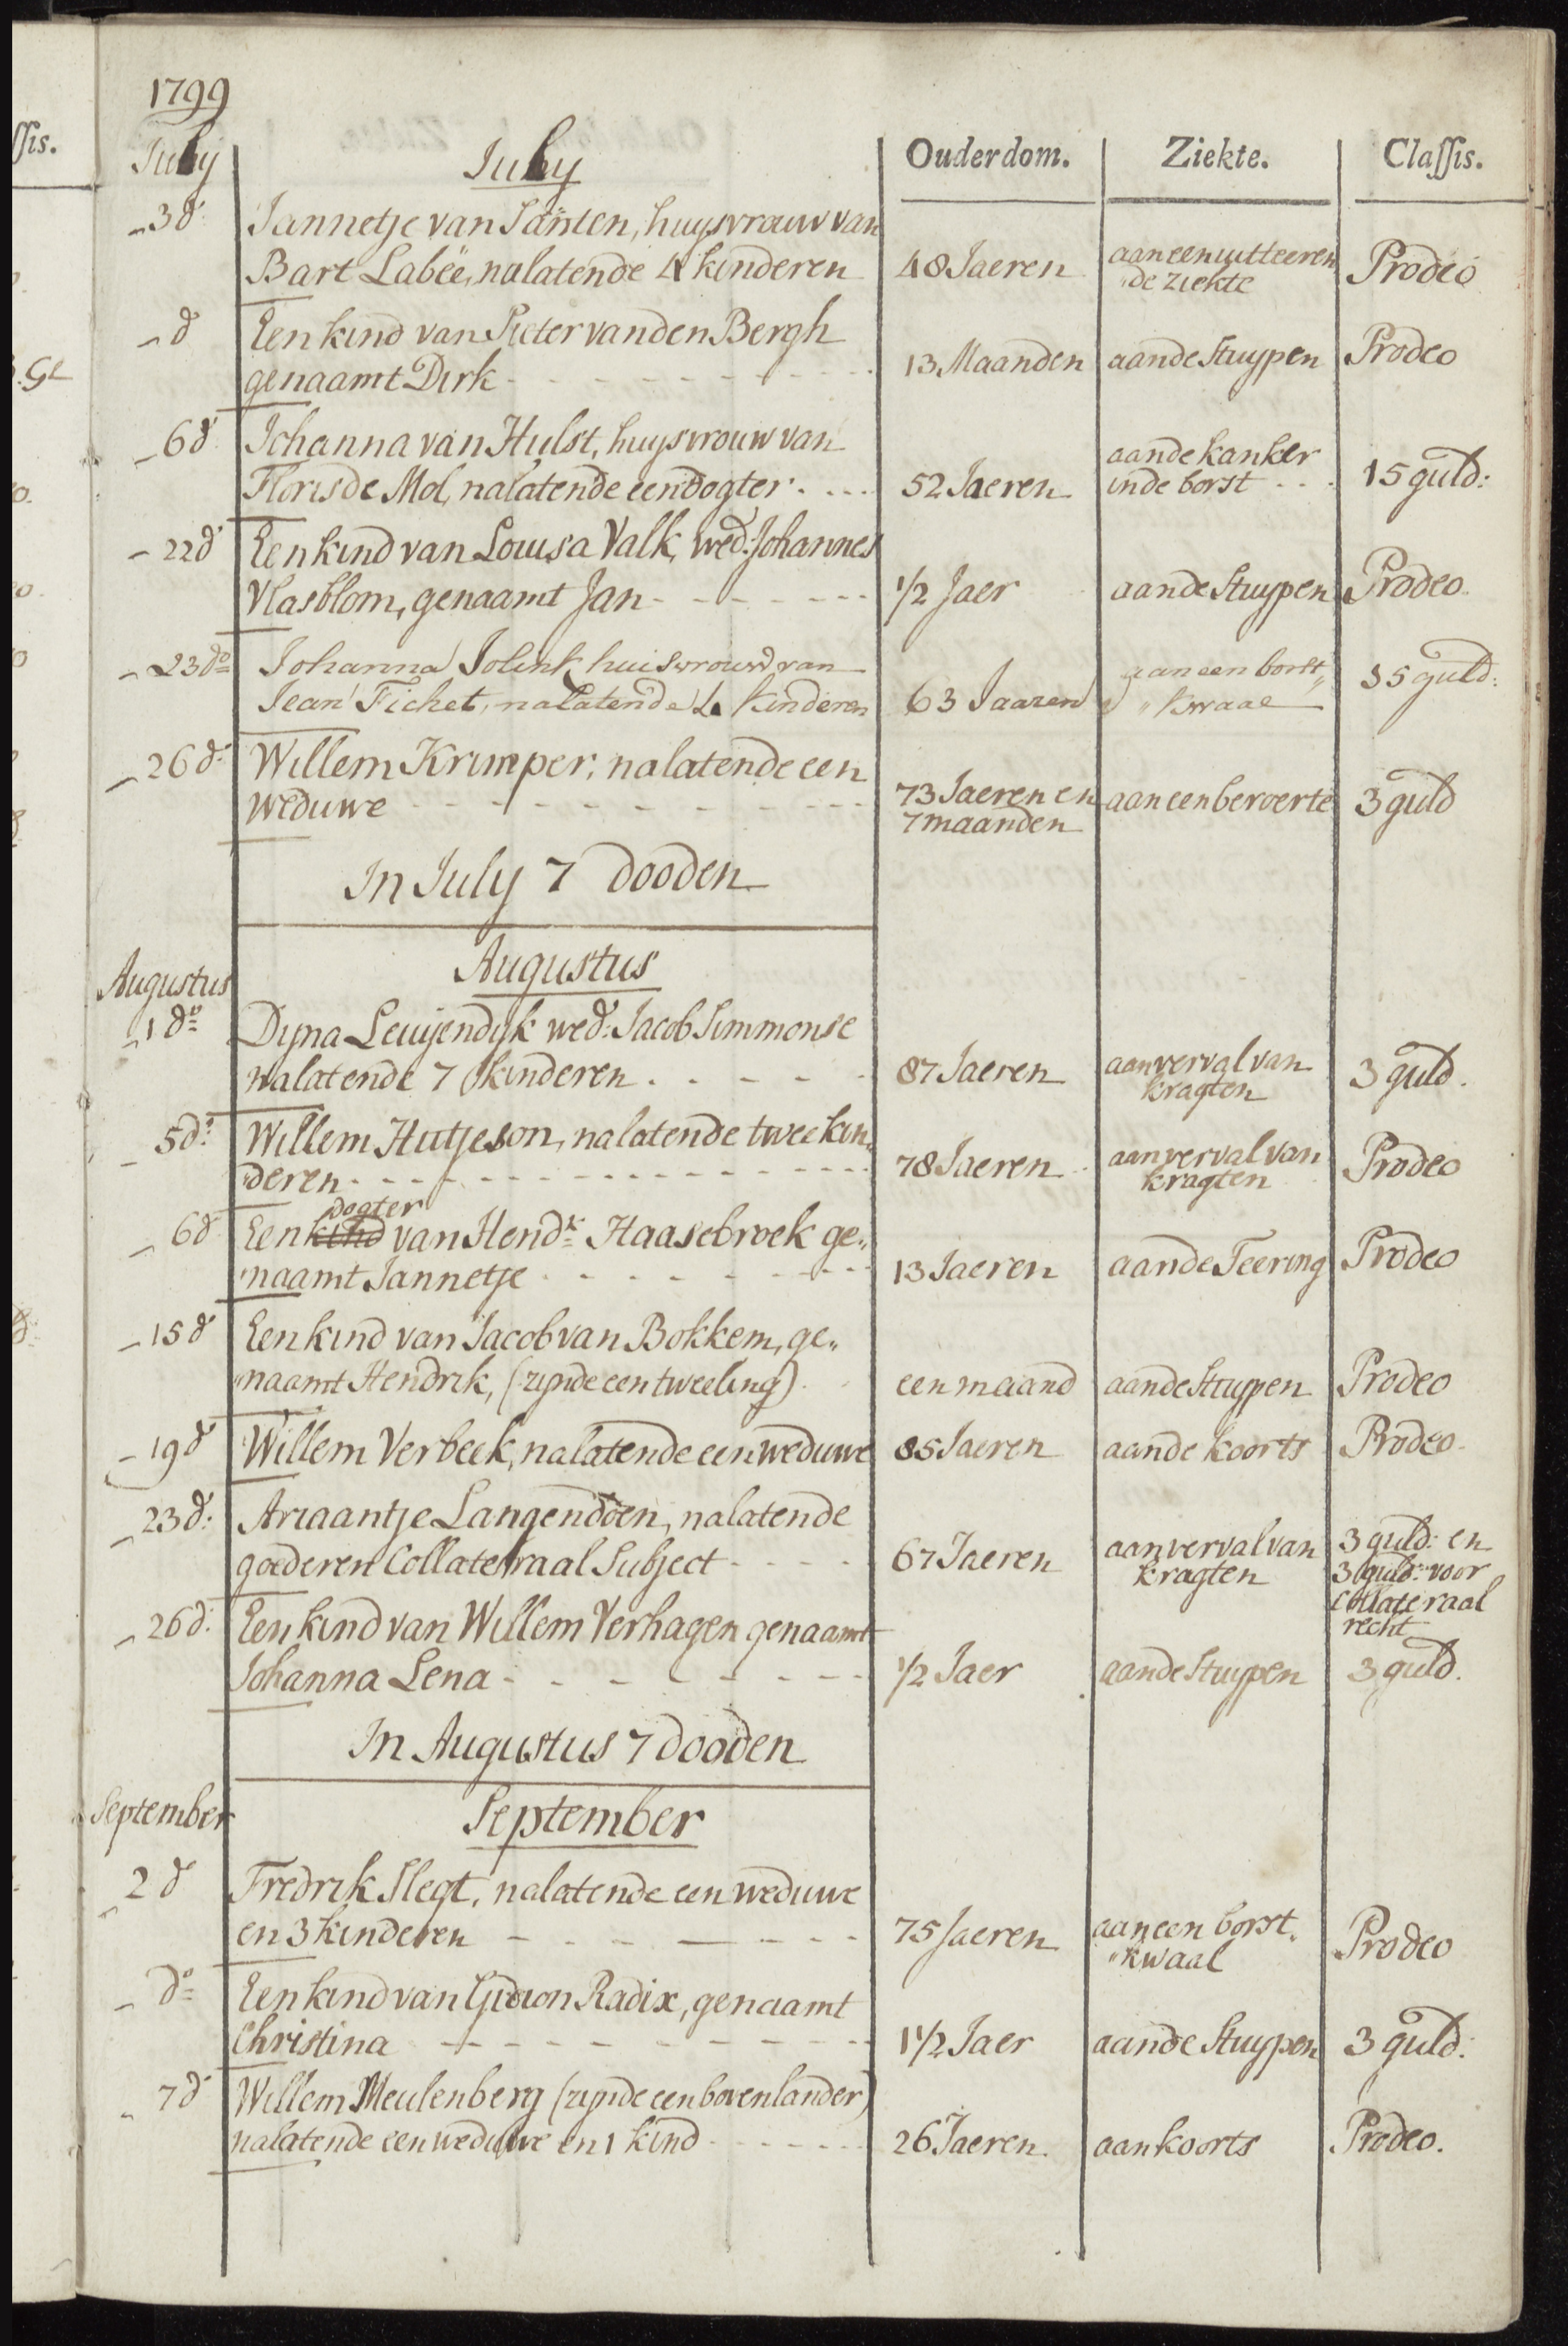 1799
July July Ouderdom. Ziekte. Classis.
3 d° Jannetje van Santen, huysvrouw van
Bart Labeë, nalatende 4 kinderen 48 Jaeren aan een uitteeren
de ziekte Prodeo
d° Een kind van Pieter van den Bergh
genaamt Dirk 13 Maanden aan de Stuypen Prodeo
6 d° Johanna van Hulst, huysvrouw van
Floris de Mol, nalatende een dogter 52 Jaeren aan de kanker
in de borst 15 guld:
22 d° Een kind van Louisa Valk, wed: Johannes
Vlasblom, genaamt Jan 1/2 Jaer aan de Stuypen Prodeo
23 d° Johanna Jolink huisvrouw van
Jean Fichet, nalatende 4 kinderen 63 Jaaren aan een borst„
„kwaal 35 guld:
26 d° Willem Krimper, nalatende een
weduwe 73 Jaeren en
7 maanden aan een beroerte 3 guld
In July 7 dooden
Augustus Augustus
1 d° Dyna Leuijendyk wed: Jacob Simmonse
nalatende 7 kinderen 87 Jaeren aan verval van
kragten 3 guld.
5 d° Willem Hutjeson, nalatende twee kin„
deren 78 Jaeren aan verval van
kragten Prodeo
dogter
6 d° Een kind van Hendk Haasebroek ge„
naamt Jannetje 13 Jaeren aan de Teering Prodeo
15 d° Een kind van Jacob van Bokkem, ge„
„naamt Hendrik, (zynde een tweeling) een maand aan de Stuypen Prodeo
19 d° Willem Verbeek, nalatende een weduwe 85 Jaeren aan de koorts Prodeo
23 d°: Ariaantje Langendoen, nalatende
goederen Collateraal Subject 67 Jaeren aan verval van
kragten 3 guld: en
3 guld: voor
Collateraal
recht
26 d°: Een kind van Willem Verhagen genaamt
Johanna Lena 1/2 Jaer aan de Stuypen 3 guld.
In Augustus 7 dooden
September September
2 d° Fredrik Slegt, nalatende een weduwe
en 3 kinderen 75 Jaeren aan een borst„
„kwaal Prodeo
d° Een kind van Gidion Radix, genaamt
Christina 1 1/2 Jaer aan de Stuypen 3 guld:
7 d° Willem Meulenberg (zynde een bovenlander)
nalatende een weduwe en 1 kind 26 Jaeren. aan koorts Prodeo.